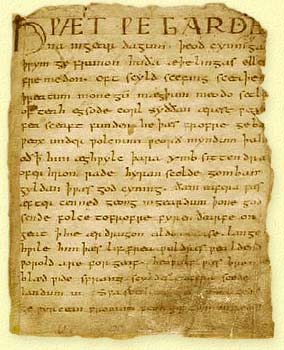 HWÆT WE GARDE
na ingear dagum. þeod cyninga
þrym ge frunon huða æþelingas elle
fremedon. oft scyld scefing sceaþe
þreatum monegū mægþum meodo setla
of teah egsode eorl syððan ærest wear
fea sceaft funden he þæs frofre geba
weox under wolcnum weorð myndum þah
oð ꝥ him æghwylc þara ymb sittendra
ofer hron rade hyran scolde gomban
gyldan ꝥ wæs god cyning. ðæm eafera wæs
æfter cenned geong in geardum þone god
sende folce tofrofre fyren ðearfe on
geat ꝥ hie ær drugon aldor ase. lange
hwile him þæs lif frea wuldres wealdend
worold are for geaf. beowulf wæs breme
blæd wide sprang scyldes eafera scede
landum in. Swa sceal
ge wyrcean fromum feoh giftum